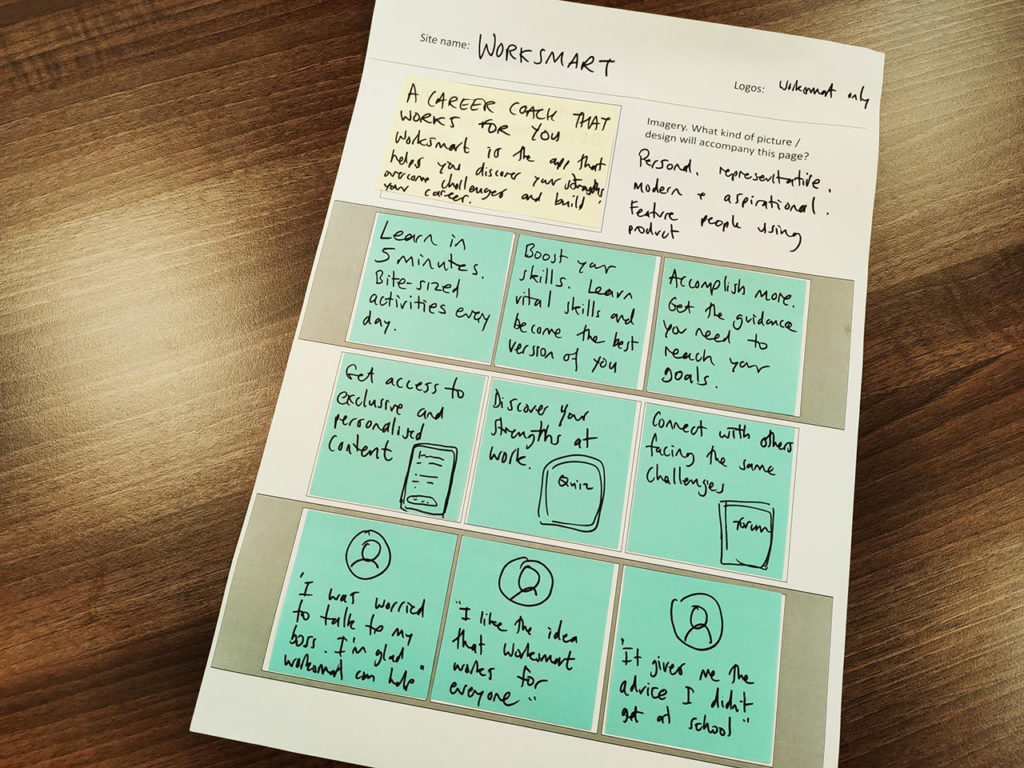 Site name: WORKSMART
Logos: Worksmart only
A CAREER COACH THAT
WORKS FOR YOU
Worksmart is the app that
helps you discover your strengths
overcome challenges and build
your career.
Imagery. What kind of picture /
design will accompany this page?
Personal. representative.
Modern + aspirational.
Feature people using
product
Learn in
5 minutes.
Bite-sized
activities every
day.
Boost your
skills. Learn
vital skills and
become the best
version of you
Accomplish more.
Get the guidance
you need to
reach your
goals.
Get access to
exclusive and
personalised
content
Discover your
strengths at
work.
Quiz
Connect with others
facing the same
challenges
forum
"I was worried
to talk to my
boss. I'm glad
worksmart can help"
"I like the idea
that worksmart
works for
everyone"
"It gives me the
advice I didn't
get at school"